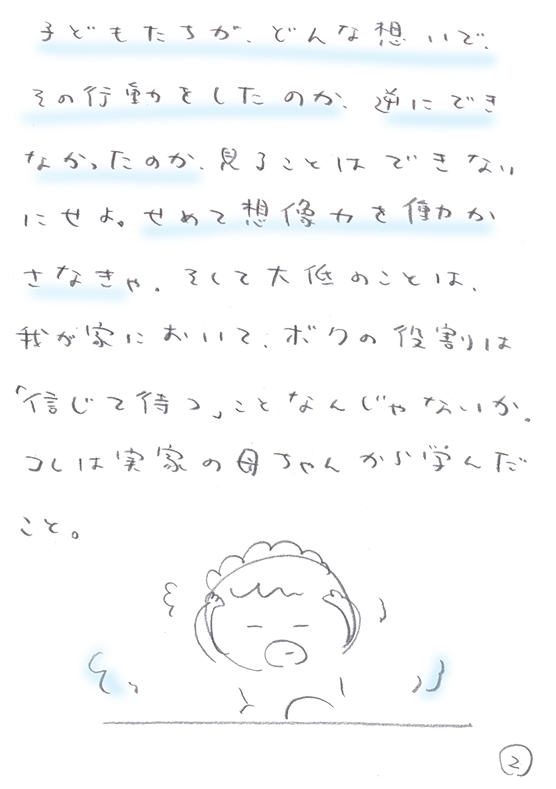 子どもたちが、どんな想いで、
その行動をしたのか、逆にでき
なかったのか、見ることはできない
にせよ。せめて想像力を働か
さなきゃ。そして大低のことは、
我が家において、ボクの役割は
「信じて待つ」ことなんじゃないか。
コレは実家の母ちゃんから学んだ
こと。
2